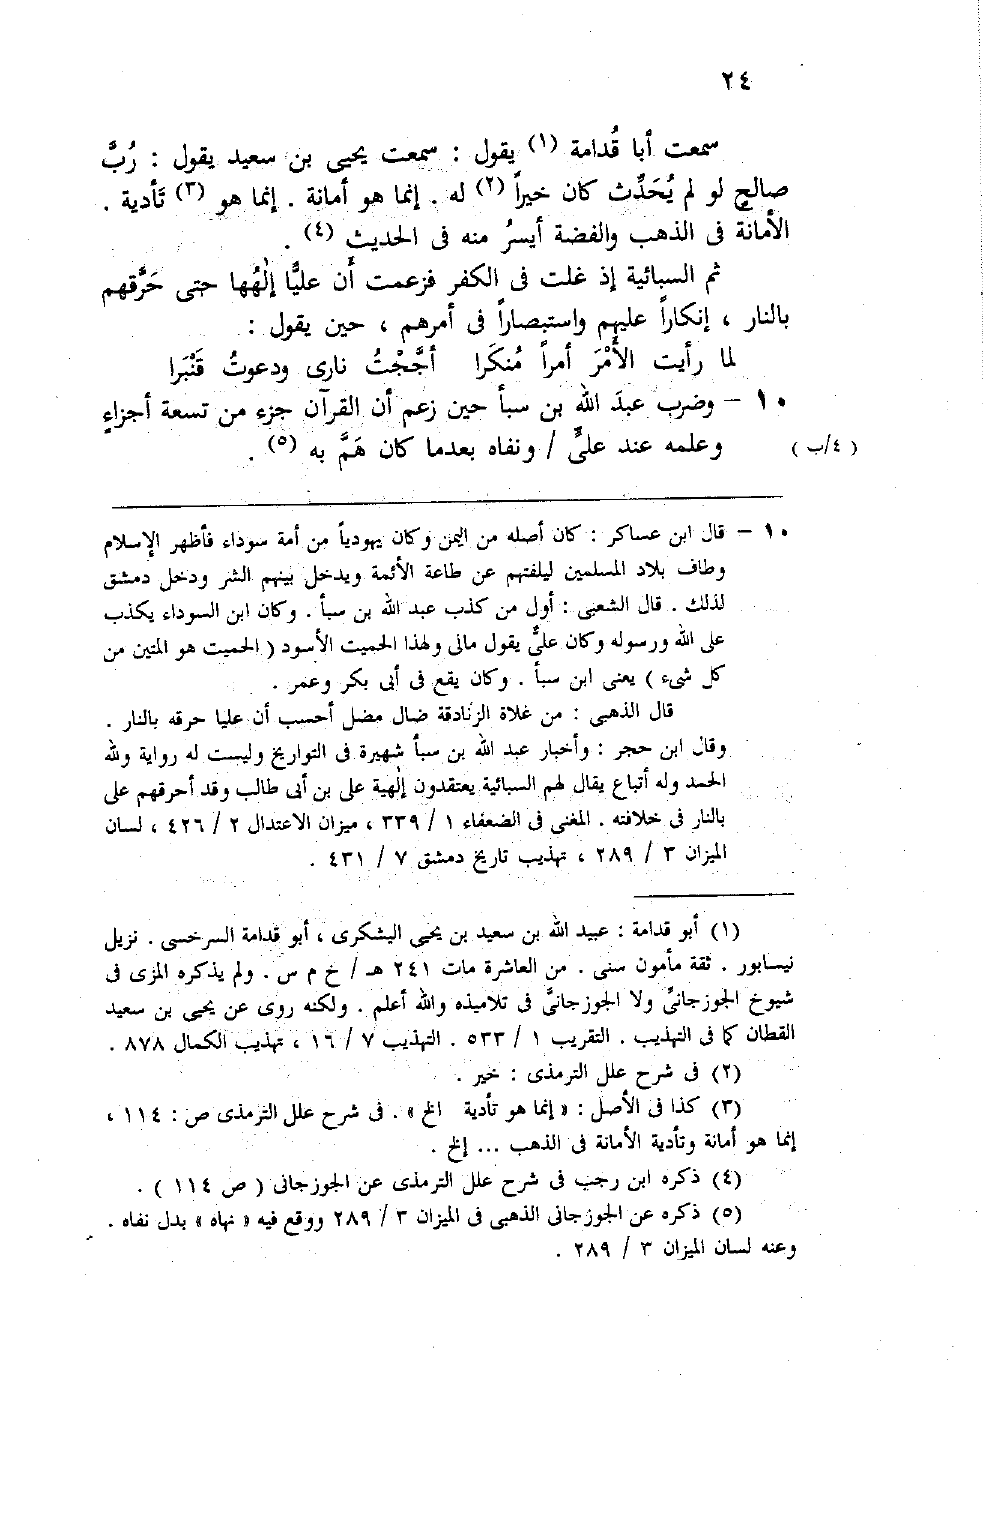 ٢٤
سمعت أبا قُدامة (١) يقول : سمعت يحيى بن سعيد يقول : رُبَّ
صالحٍ لو لم يُحَدِّث كان خيراً (٢) له . إنما هو أمانة . إنما هو (٣) تَأدية .
الأمانة فى الذهب والفضة أيسرُ منه فى الحديث (٤) .
ثم السبائية إذ غلت فى الكفر فزعمت أن عليًّا إلٰهُها حتى حَرَّقهم
بالنار ، إنكاراً عليهم واستبصاراً فى أمرهم ، حين يقول :
لما رأيت الأَمْرَ أمراً مُنكَرا أجَّجْتُ نارى ودعوتُ قَنْبَرا
١٠ – وضرب عبدَ الله بن سبأ حين زعم أن القرآن جزء من تسعة أجزاءٍ
وعلمه عند علىٍّ / ونفاه بعدما كان هَمَّ به (٥) . ( ٤/ب )
١٠ – قال ابن عساكر : كان أصله من اليمن وكان يهودياً من أمة سوداء فأظهر الإسلام
وطاف بلاد المسلمين ليلفتهم عن طاعة الأئمة ويدخل بينهم الشر ودخل دمشق
لذلك . قال الشعبى : أول من كذب عبد الله بن سبأ . وكان ابن السوداء يكذب
على الله ورسوله وكان علىٌّ يقول مالى ولهذا الحميت الأسود ( الحميت هو المتين من
كل شىء ) يعنى ابن سبأ . وكان يقع فى أبى بكر وعمر .
قال الذهبى : من غلاة الزنادقة ضال مضل أحسب أن عليا حرقه بالنار .
وقال ابن حجر : وأخبار عبد الله بن سبأ شهيرة فى التواريخ وليست له رواية ولله
الحمد وله أتباع يقال لهم السبائية يعتقدون إلٰهية على بن أبى طالب وقد أحرقهم على
بالنار فى خلافته . المغنى فى الضعفاء ١ / ٣٣٩ ، ميزان الاعتدال ٢ / ٤٢٦ ، لسان
الميزان ٣ / ٢٨٩ ، تهذيب تاريخ دمشق ٧ / ٤٣١ .
(١) أبو قدامة : عبيد الله بن سعيد بن يحيى اليشكرى ، أبو قدامة السرخسى . نزيل
نيسابور . ثقة مأمون سنى . من العاشرة مات ٢٤١ هـ / خ م س . ولم يذكره المزى فى
شيوخ الجوزجانىِّ ولا الجوزجانىَّ فى تلاميذه والله أعلم . ولكنه روى عن يحيى بن سعيد
القطان كما فى التهذيب . التقريب ١ / ٥٣٣ . التهذيب ٧ / ١٦ ، تهذيب الكمال ٨٧٨ .
(٢) فى شرح علل الترمذى : خير .
(٣) كذا فى الأصل : « إنما هو تأدية الخ » . فى شرح علل الترمذى ص : ١١٤ ،
إنما هو أمانة وتأدية الأمانة فى الذهب ... إلخ .
(٤) ذكره ابن رجب فى شرح علل الترمذى عن الجوزجانى ( ص ١١٤ ) .
(٥) ذكره عن الجوزجانى الذهبى فى الميزان ٣ / ٢٨٩ ووقع فيه « نهاه » بدل نفاه .
وعنه لسان الميزان ٣ / ٢٨٩ .